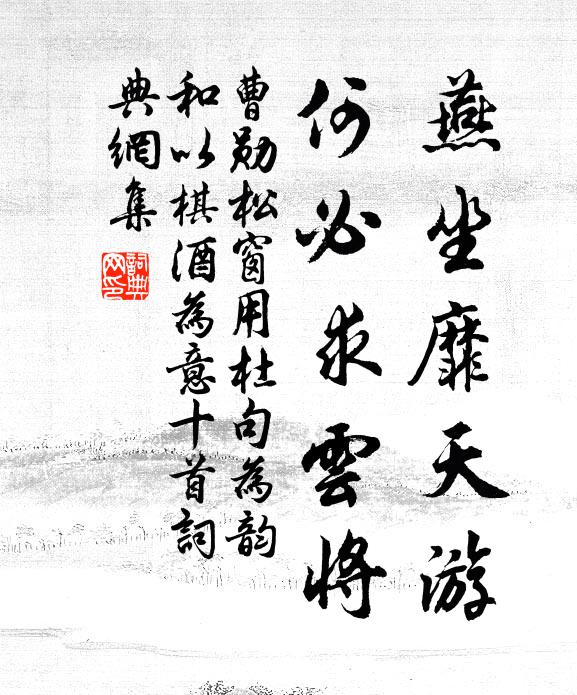 燕坐靡天游
何必求雲將
曹勛松窗用杜句為韵
和以棋酒為意十首詞
典網集
詞典网印